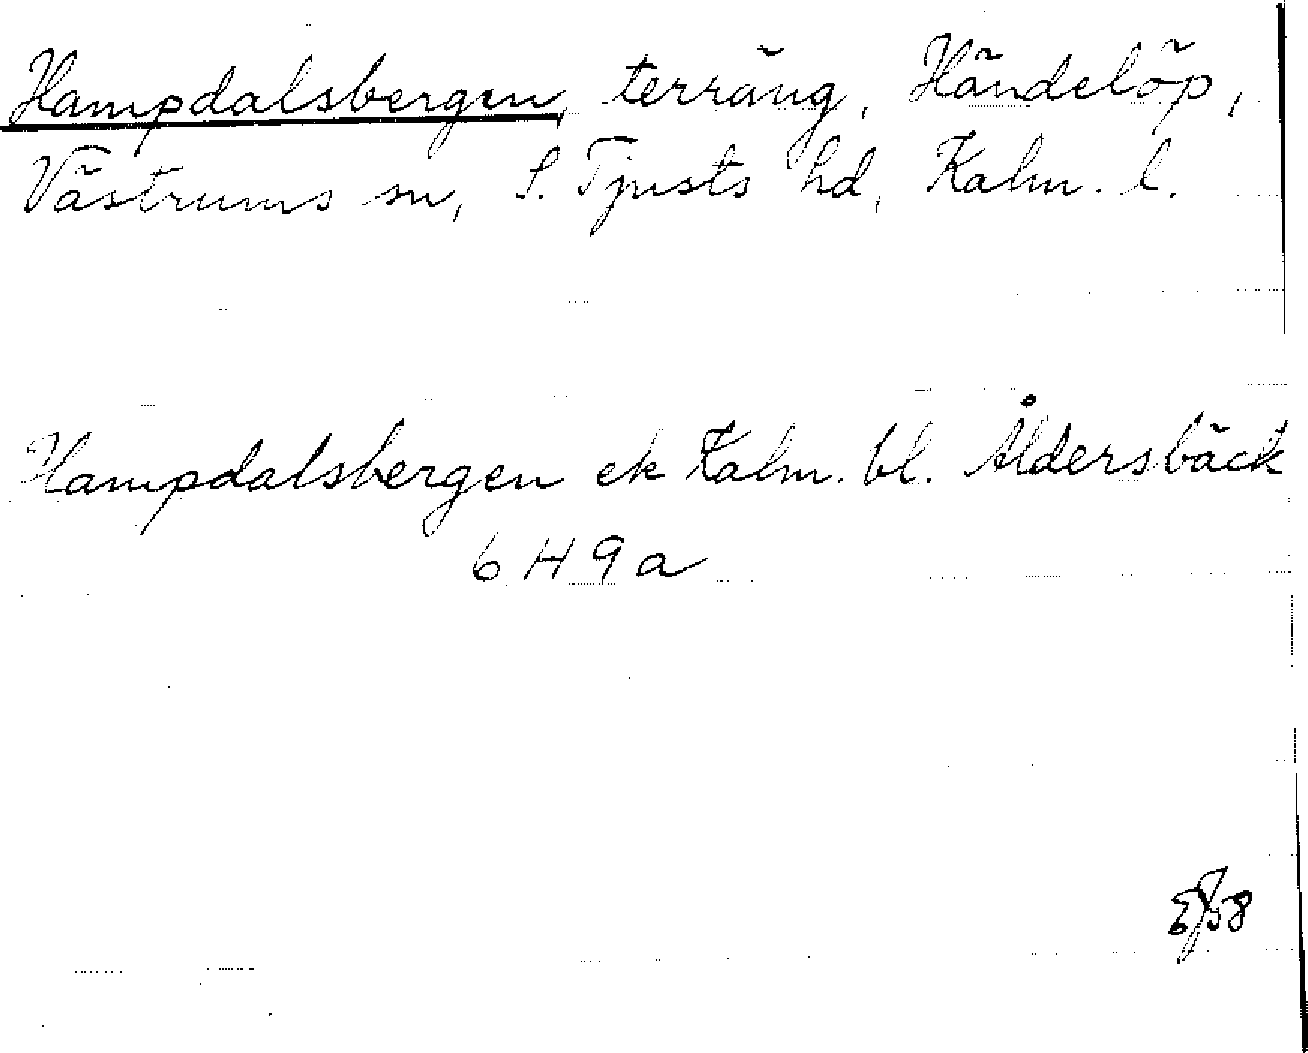 Hampdalsbergen, terräng, Händelöp,
Västrums sn, S. Tjusts hd, Kalm. l.
Hampdalsbergen ek Kalm. bl. Åldersbäck
6 H 9 a